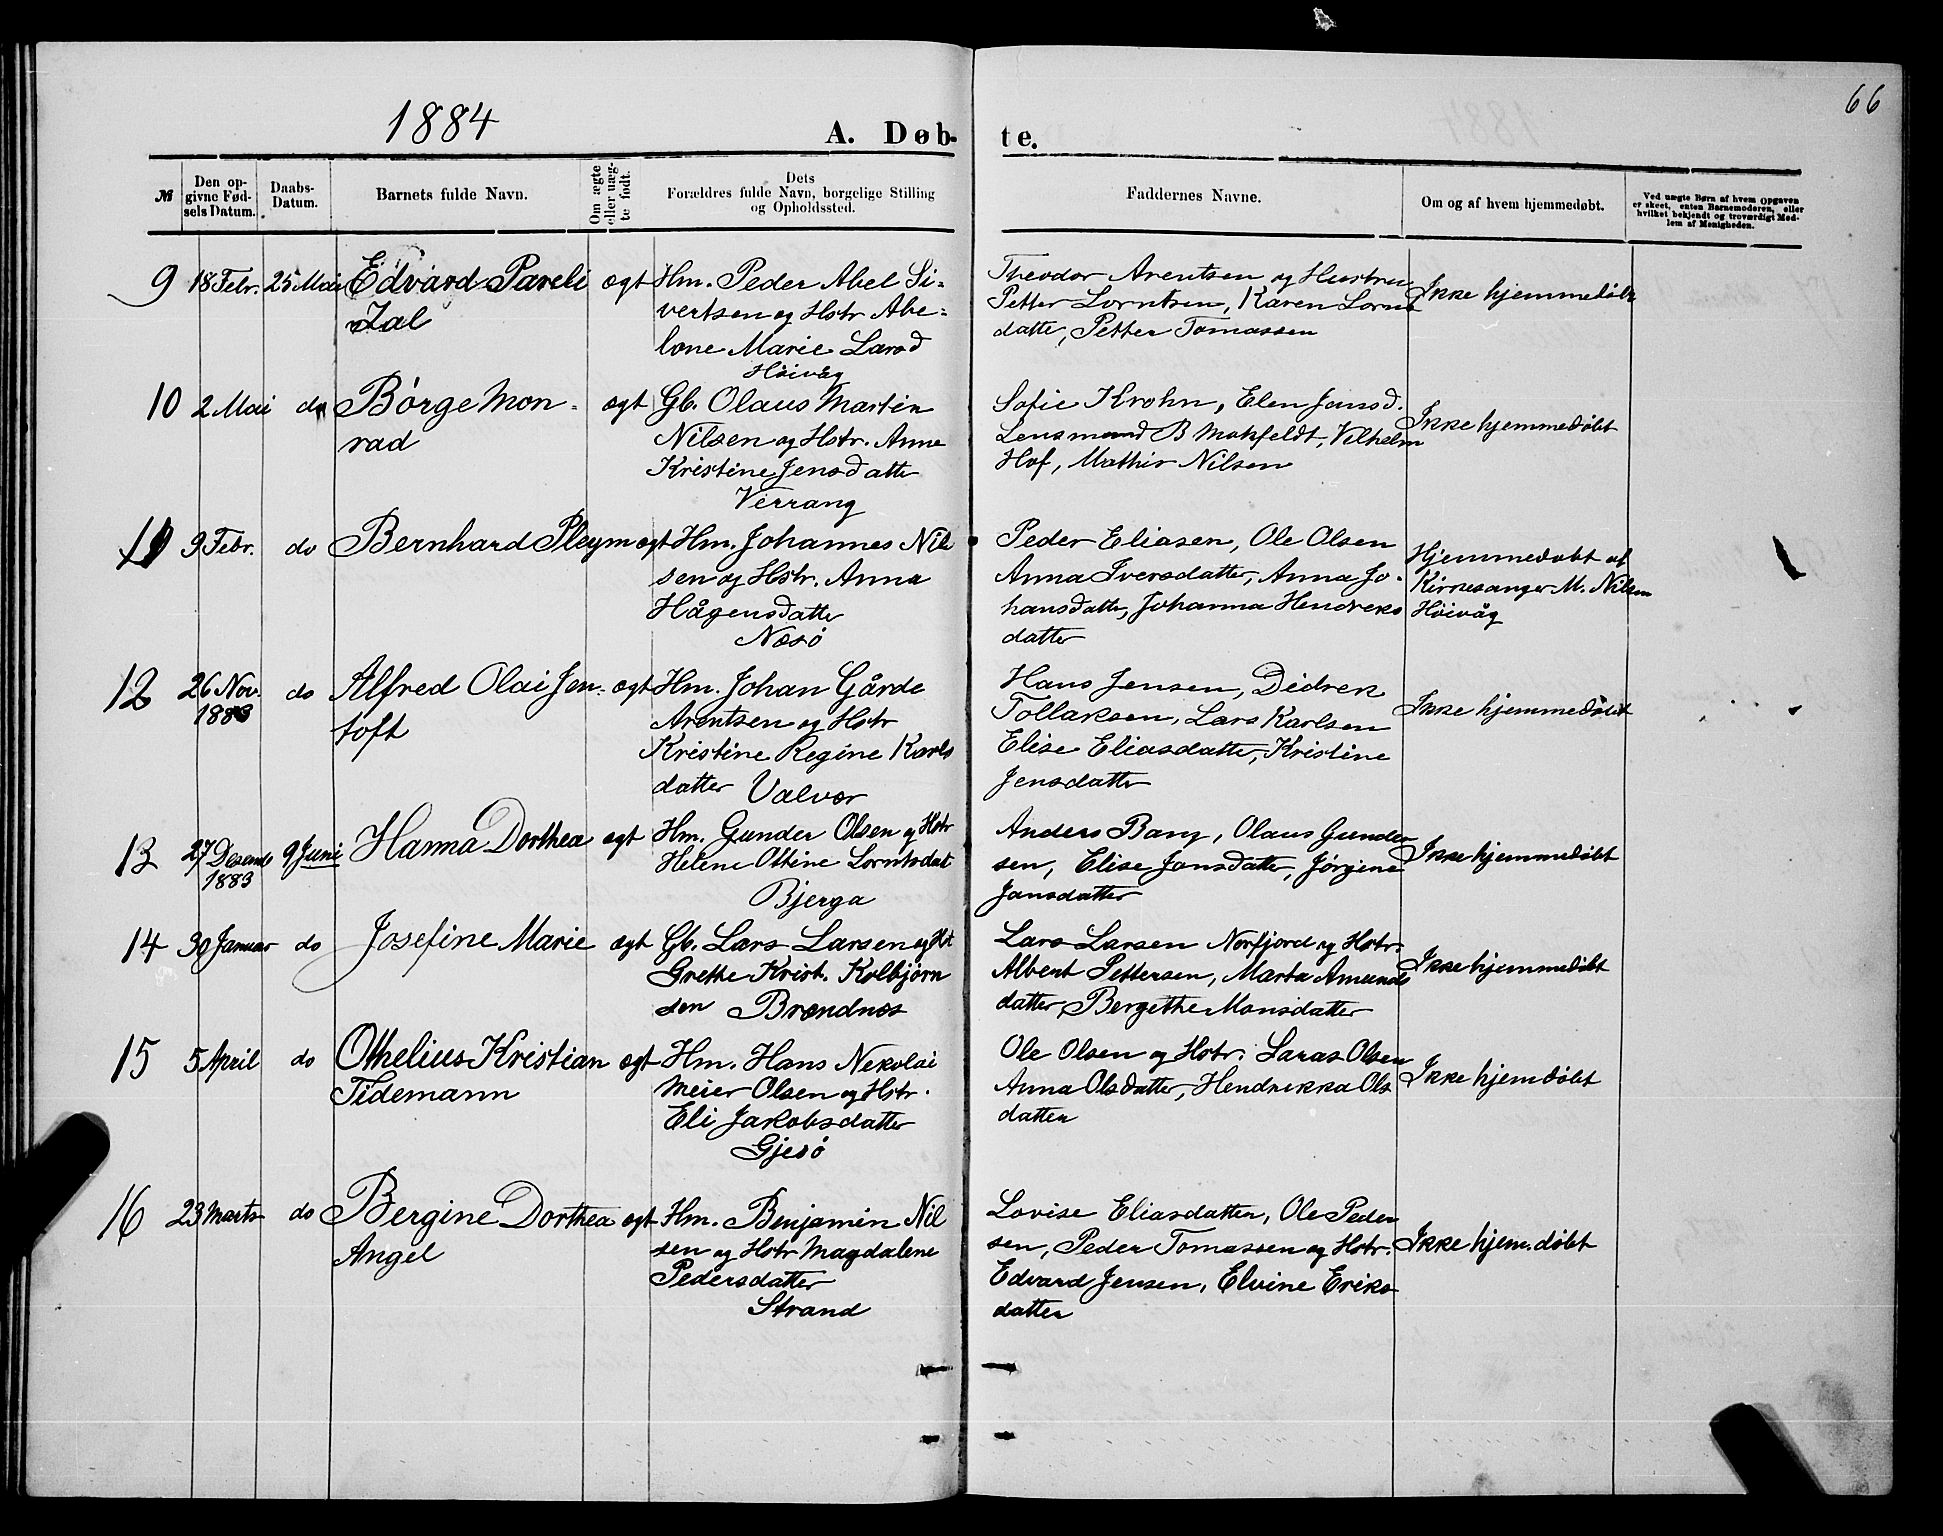 1884
66
A. Døb-
te.
№
Den op-
givne Fød-
sels Datum.
Daabs-
Datum.
Barnets fulde Navn.
Om ægte
eller uæg-
te født.
Dets
Forældres fulde Navn, borgelige Stilling
og Opholdssted.
Faddernes Navne.
Om og af hvem hjemmedøbt.
Ved uægte Børn af hvem Opgaven
er skeet, enten Barnemoderen, eller
hvilket bekjendt og troværdigt Med-
lem af Menigheden.
9
18 Febr.
25 Mai
Edvard Pareli
Zal
ægt
Hm. Peder Abel Si-
vertsen og Hstr Abe-
lone Marie Larsd
Höivåg
Theodor Arentsen og Hustru
Petter Lorntsen, Karen Lorns
datte, Petter Tomassen
Ikke hjemmedöbt
10
2 Mai
do
Børge Mon-
rad
ægt
Gb. Olaus Martin
Nilsen og Hstr. Anne
Kristine Jensdatte
Verrang
Sofie Krohn, Elen Jensd.
Lensmand B Mohfeldt, Vilhelm
Hof, Mathis Nilsen
Ikke hjemmedöbt
11
9 Febr.
do
Bernhard Pleym
ægt
Hm. Johannes Nil
sen og Hstr. Anna
Hågensdatter
Næsö
Peder Eliasen, Ole Olsen
Anna Iversdatter, Anna Jo-
hansdatte, Johanna Hendreks
datter
Hjemmedøbt af
Kirkesanger M. Nilsen
Höivåg
12
26 Nov.
1883
do
Alfred Olai Jen-
toft
ægt
Hm. Johan Gårde
Arentsen og Hstr
Kristine Regine Karls
datter Valvær
Hans Jensen, Didrek
Tollaksen, Lars Karlsen
Elise Eliasdatte, Kristine
Jensdatter
Ikke hjemmedöbt
13
27 Desemb
1883
9 Juni
Hanna Dorthea
ægt
Hm. Gunder Olsen og Hstr
Helene Ottine Lorntsdat
Bjerga
Anders Bang, Olaus Gunder
sen, Elise Jansdatte, Jörgine
Jansdatter
Ikke hjemmedöbt
14
30 Januar
do
Josefine Marie
ægt
Gb. Lars Larsen og Hst
Grethe Krist. Kolbjörn
sen Brændnes
Lars Larsen Norfjord og Hstr.
Albert Pettersen, Marta Amunds
datter, Bergethe Monsdatter
Ikke hjemmedöbt
15
5 April
do
Othelius Kristian
Tidemann
ægt
Hm. Hans Nekolai
Meier Olsen og Hstr.
Eli Jakobsdatter
Gjesö
Ole Olsen og Hstr. Laras Olsen
Anna Olsdatter, Hendrikka Ols
datter
Ikke hjemdöbt
16
23 Marts
do
Bergine Dorthea
Angel
ægt
Hm. Benjamin Nil
sen og Hstr Magdalene
Pedersdatter
Strand
Lovise Eliasdatter, Ole Peder
sen, Peder Tomassen og Hstr.
Edvard Jensen, Elvine Eriks
datter
Ikke hjem.döbt